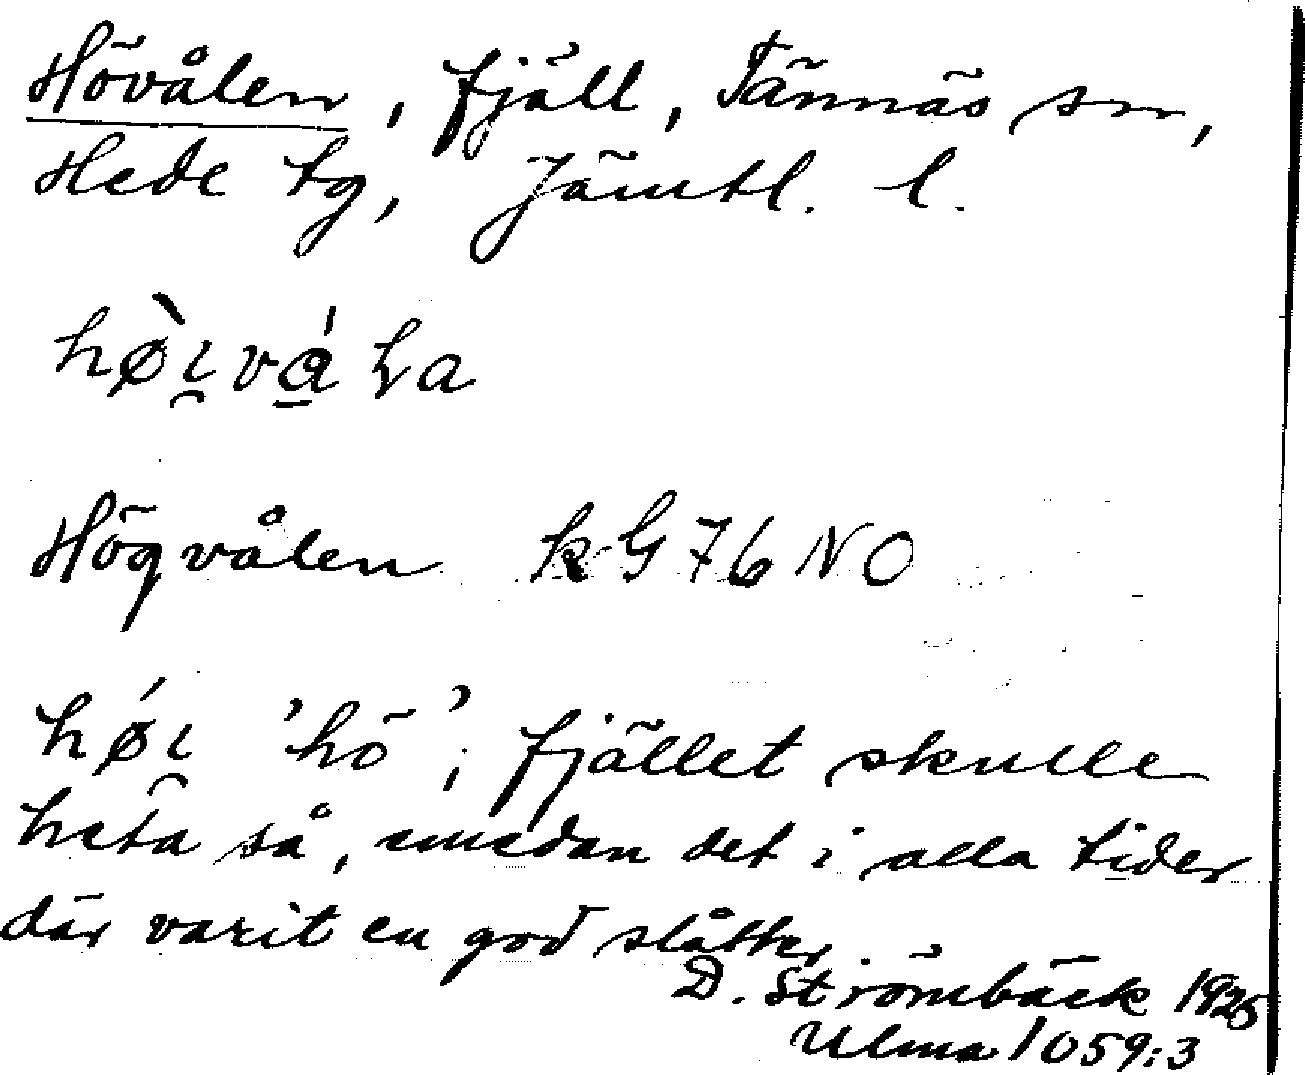 Hövålen, fjäll, Tännäs sn,
Hede tg, Jämtl. l.
Högvålen k G 76 NO
'hö'; fjället skulle
heta så, emedan det i alla tider
där varit en god slåtter.
D. Strömbäck 1925
Ulma 1059:3